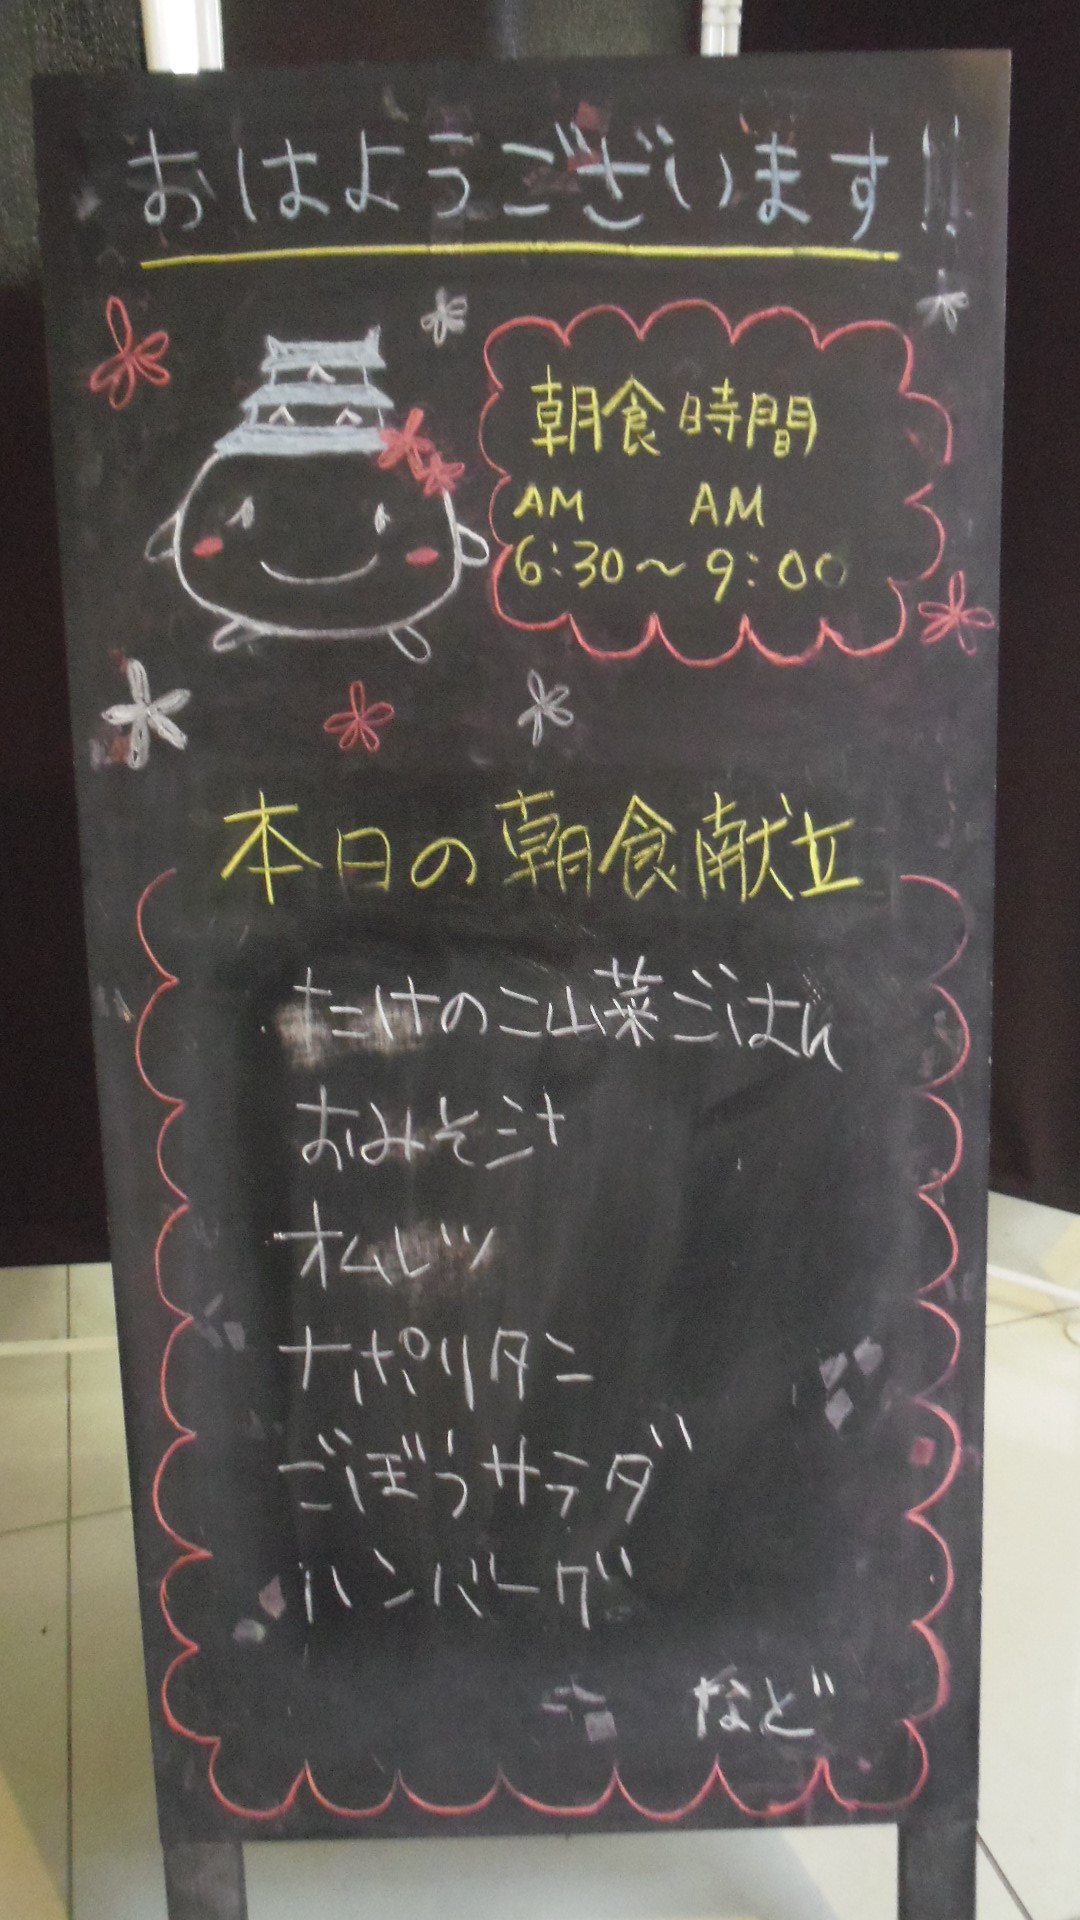 おはようございます!!
朝食時間
AM AM
6:30～9:00
本日の朝食献立
たけのこ山菜ごはん
おみそ汁
オムレツ
ナポリタン
ごぼうサラダ
ハンバーグ
など